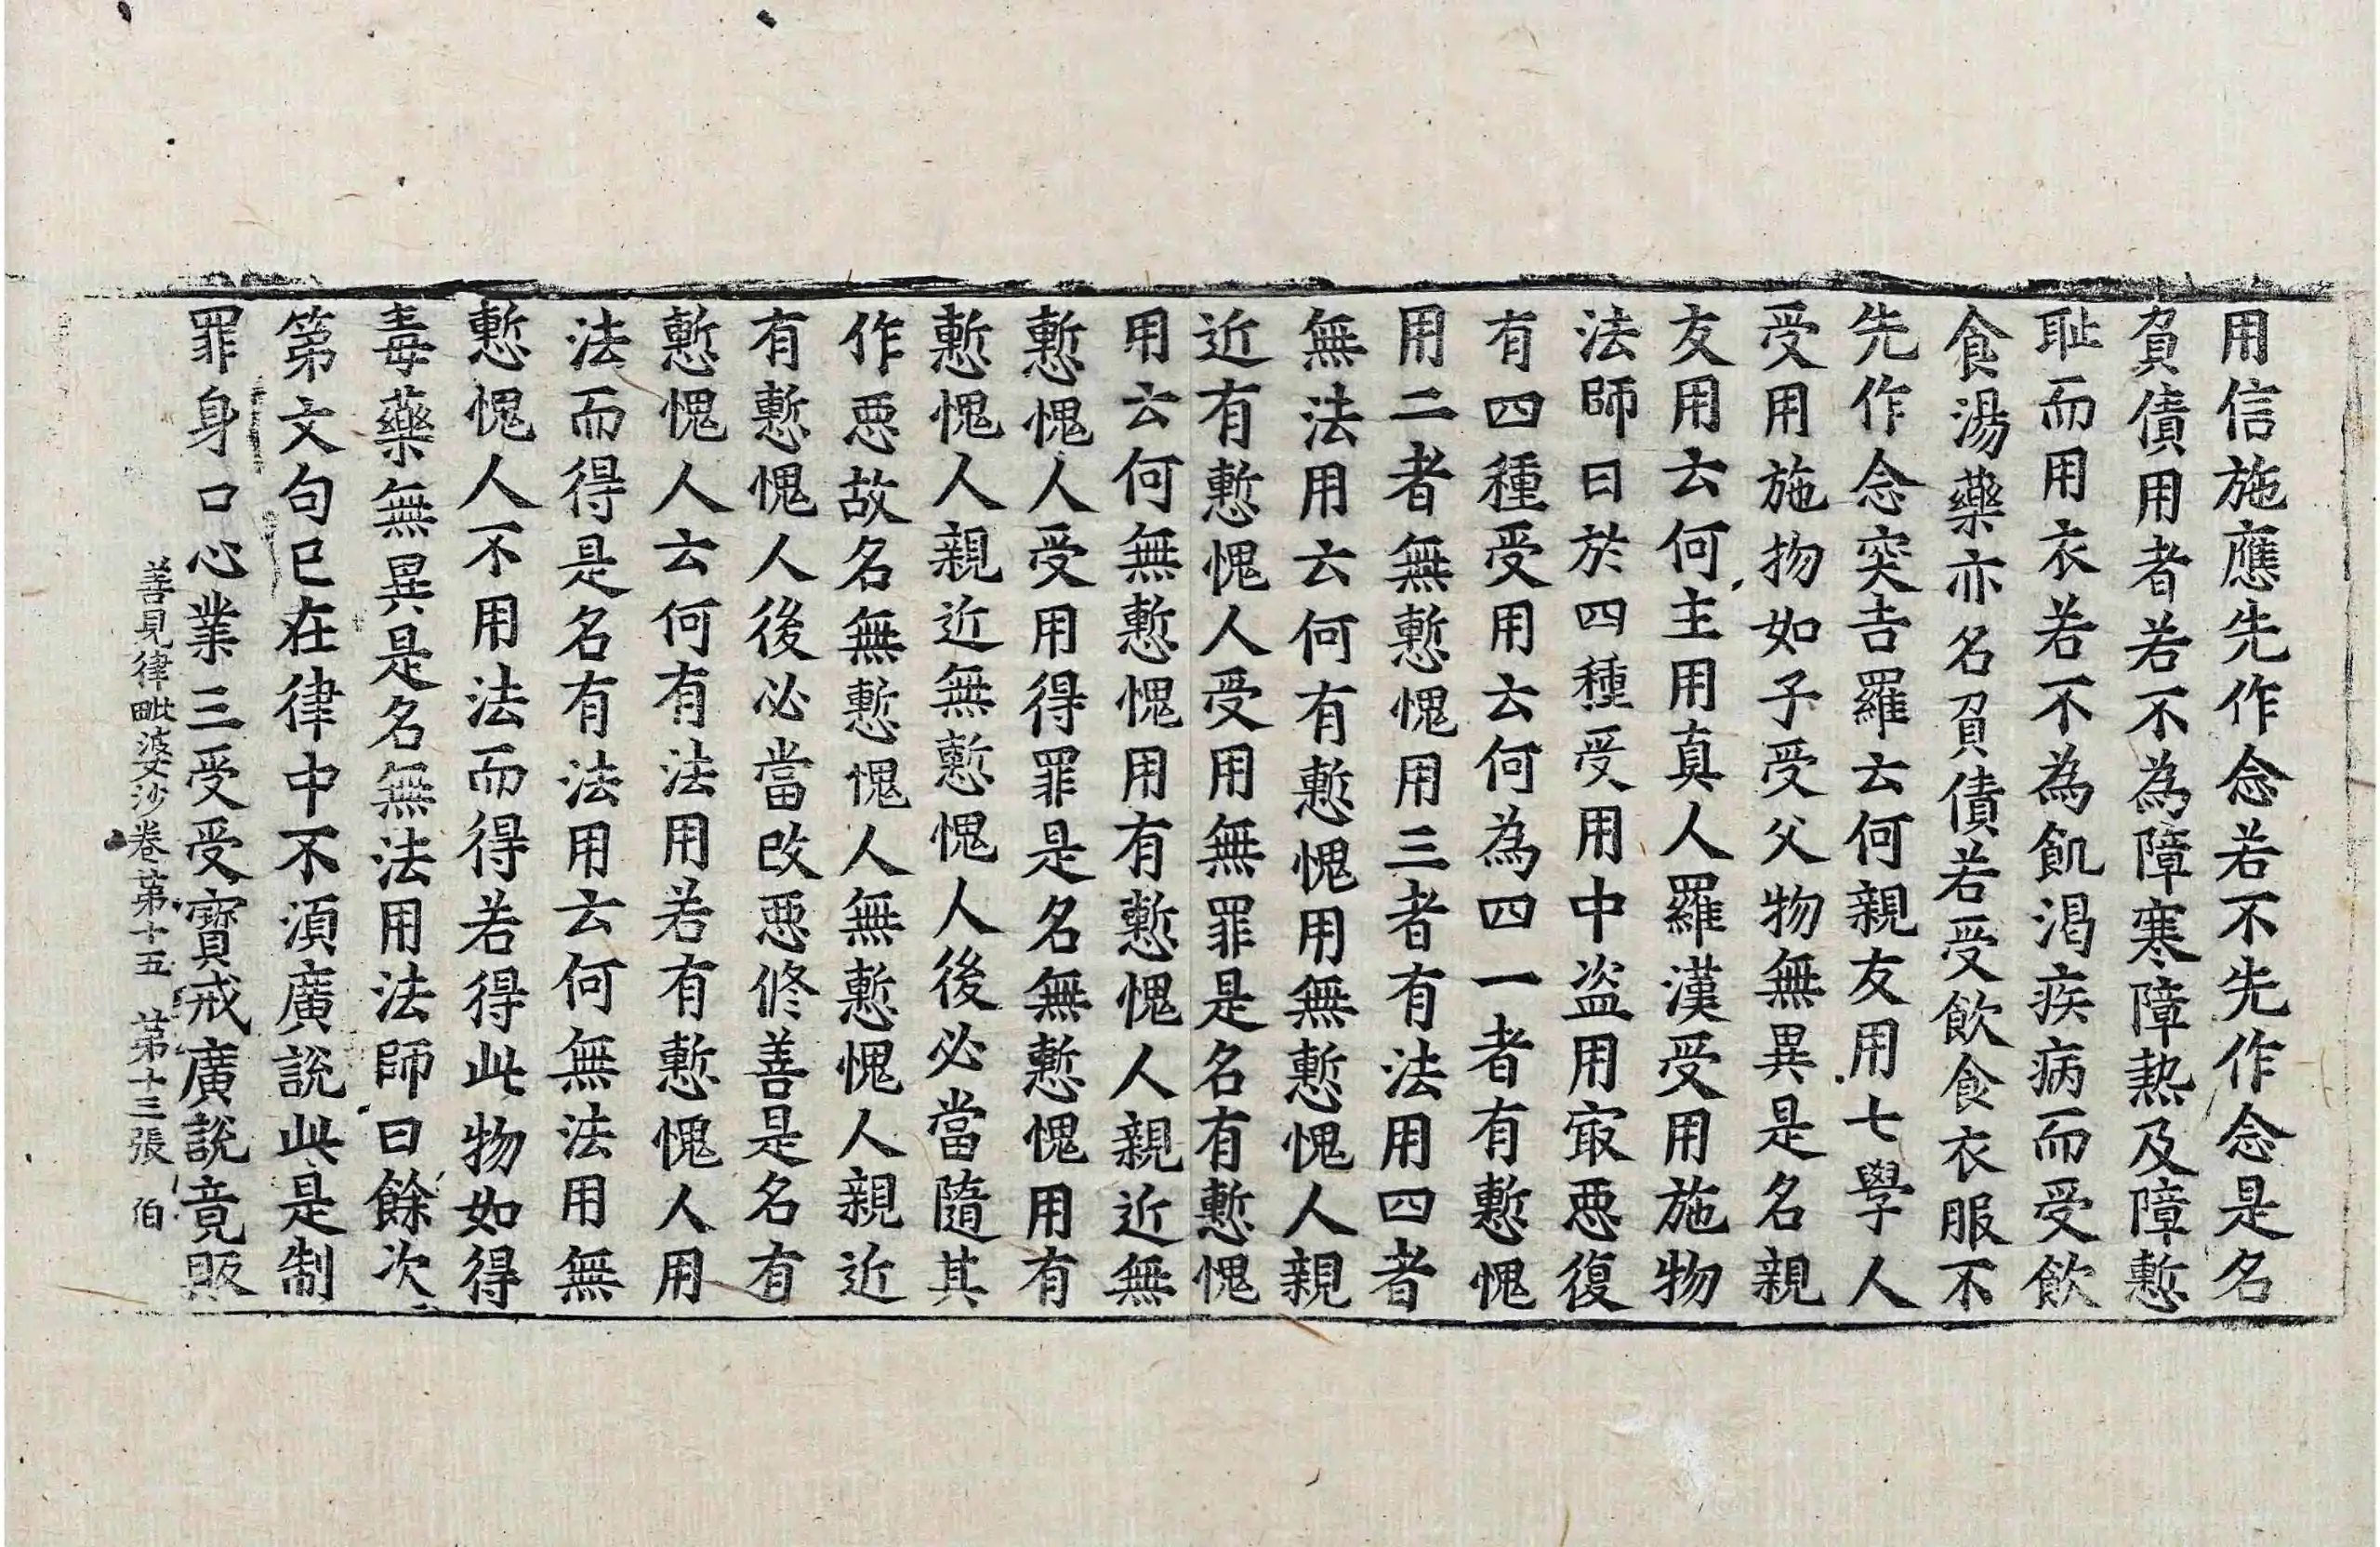 用信施應先作念若不先作念是名
負債用者若不為障寒障熱及障慙
耻而用衣若不為飢渴疾病而受飲
食湯藥亦名負債若受飲食衣服不
先作念突吉羅云何親友用七學人
受用施物如子受父物無異是名親
友用云何主用真人羅漢受用施物
法師曰於四種受用中盜用㝡惡復
有四種受用云何為四一者有慙愧
用二者無慙愧用三者有法用四者
無法用云何有慙愧用無慙愧人親
近有慙愧人受用無罪是名有慙愧
用云何無慙愧用有慙愧人親近無
慙愧人受用得罪是名無慙愧用有
慙愧人親近無慙愧人後必當隨其
作惡故名無慙愧人無慙愧人親近
有慙愧人後必當改惡俢善是名有
慙愧人云何有法用若有慙愧人用
法而得是名有法用云何無法用無
慙愧人不用法而得若得此物如得
毒藥無異是名無法用法師曰餘次
第文句已在律中不湏廣說此是制
罪身口心業三受受寳戒廣說竟販
善見律毗婆沙卷第十五　第十三張　伯